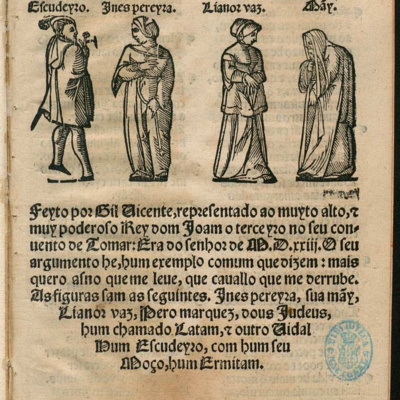 Escudeyro. Ines pereyra. Lianor vaz. Mãy.
Feyto por Gil Vicente, representado ao muyto alto, ⁊
muy poderoso Rey dom Joam o terceyro no seu con
uento de Tomar: Era do senhor de M.D.xxiij. O seu
argumento he, hum exemplo comum que dizem: mais
quero asno que me leue, que cauallo que me derrube.
As figuras sam as seguintes. Ines pereyra, sua mãy,
Lianor vaz, Pero marquez, dous Judeus,
hum chamado Latam, ⁊ outro Vidal
Hum Escudeyro, com hum seu
Moço, hum Ermitam.